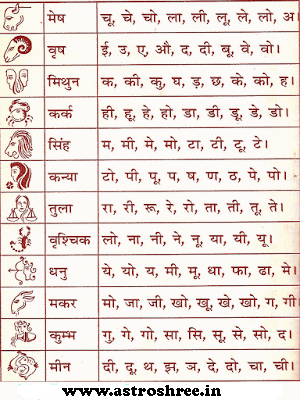 मेष चू, चे, चो, ला, ली, लू, ले, लो, अ।
वृष ई, उ, ए, औ, द, दी, बू, वे, वो।
मिथुन क, की, कु, घ, ड़, छ, के, को, ह।
कर्क ही, हू, हे, हो, डा, डी, डू, डे, डो।
सिंह म, मी, मे, मो, टा, टी, टू, टे।
कन्या टो, पी, पू, प, ष, ण, ठ, पे, पो।
तुला रा, री, रू, रे, रो, ता, ती, तू, ते।
वृश्चिक लो, ना, नी, ने, नू, या, यी, यू।
धनु ये, यो, य, मी, मू, धा, फा, ढा, मे।
मकर मो, जा, जी, खो, खू, खे, खो, ग, गी
कुम्भ गु, गे, गो, सा, सि, सू, से, सो, द।
मीन दी, दू, थ, झ, ञ, दे, दो, चा, ची।
www.astroshree.in